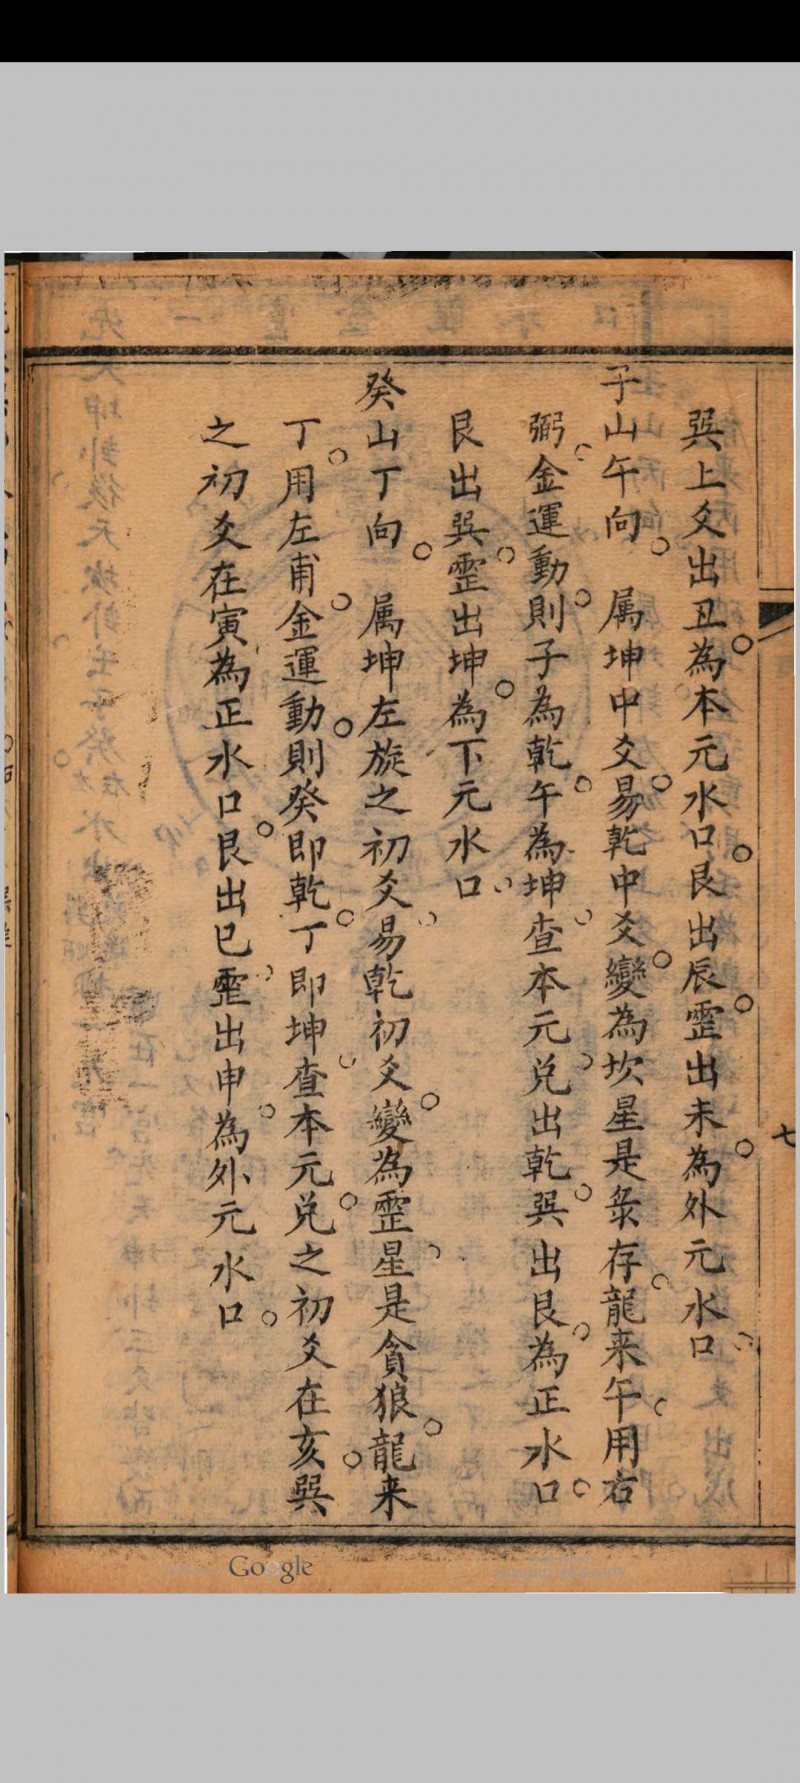 巽上爻出丑。為本元水口。艮出辰。霊出未。為外元水口。
子山午向。　属坤中爻。易乾中爻。變為坎星是彔存。龍来午。用右
弼。金運動。則子為乾。午為坤。查本元。兑出乾。巽出艮。為正水口。
艮出巽。霊出坤。為下元水口。
癸山丁向。　属坤左旋之初爻。易乾初爻。變為霊。星是貪狼。龍来
丁。用左甫。金運動。則癸即乾。丁即坤。查本元。兑之初爻在亥。巽
之初爻在寅。為正水口。艮出巳。霊出申。為外元水口。
七
Google